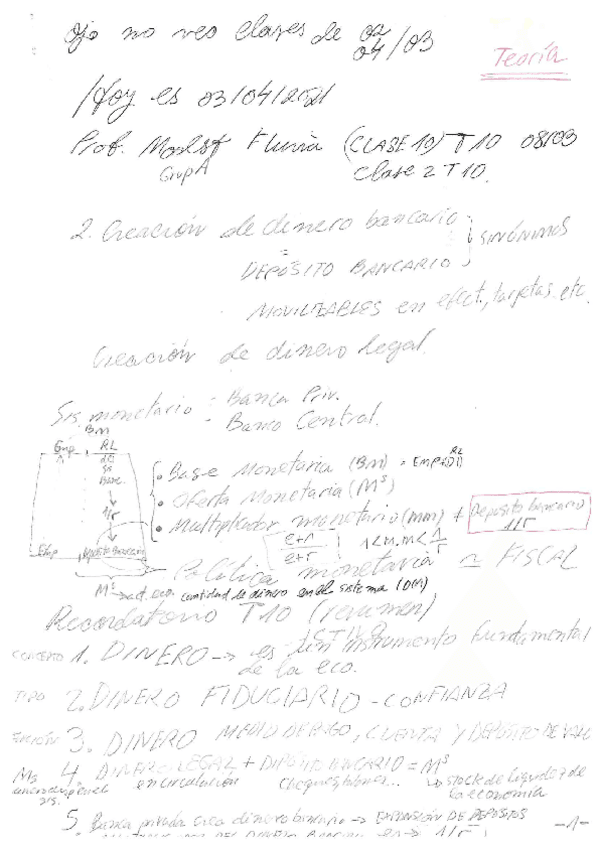 Ojo no veo clases de 02/03
04
Teoría
Hoy es 03/04/2021
Prof. Fluvia (CLASE 10) T10 08/03
Grup A Clase 2 T10.
2. Creación de dinero bancario
=
DEPÓSITO BANCARIO
SINÓNIMOS
MOVILIZABLES en efect., tarjetas, etc.
Creación de dinero legal.
Sis. monetario : Banca Priv.
Banco Central.
Bm
Emp RL
Base
1/r
Emp Depósito Bancario
• Base Monetaria (Bm) = Emp+RL
• Oferta Monetaria (Mˢ)
• Multiplicador monetario (mm) + Depósito bancario 1/r
e+1
e+r
1<m.m<1/r
Política monetaria ≃ FISCAL
Mˢ → act. eco. cantidad de dinero en el sistema (OM)
Recordatorio T10 (resumen)
CONCEPTO 1. DINERO → es un instrumento fundamental
de la eco.
TIPO 2. DINERO FIDUCIARIO - CONFIANZA
FUNCIÓN 3. DINERO MEDIO DE PAGO, CUENTA Y DEPÓSITO DE VALO
4. DINERO LEGAL + DEPÓSITO BANCARIO = Mˢ
en circulación Cheques, talones... ↳ stock de liquidez de
la economía
5. Banca privada crea dinero bancario → EXPANSIÓN DE DEPÓSITOS
1/r
-1-